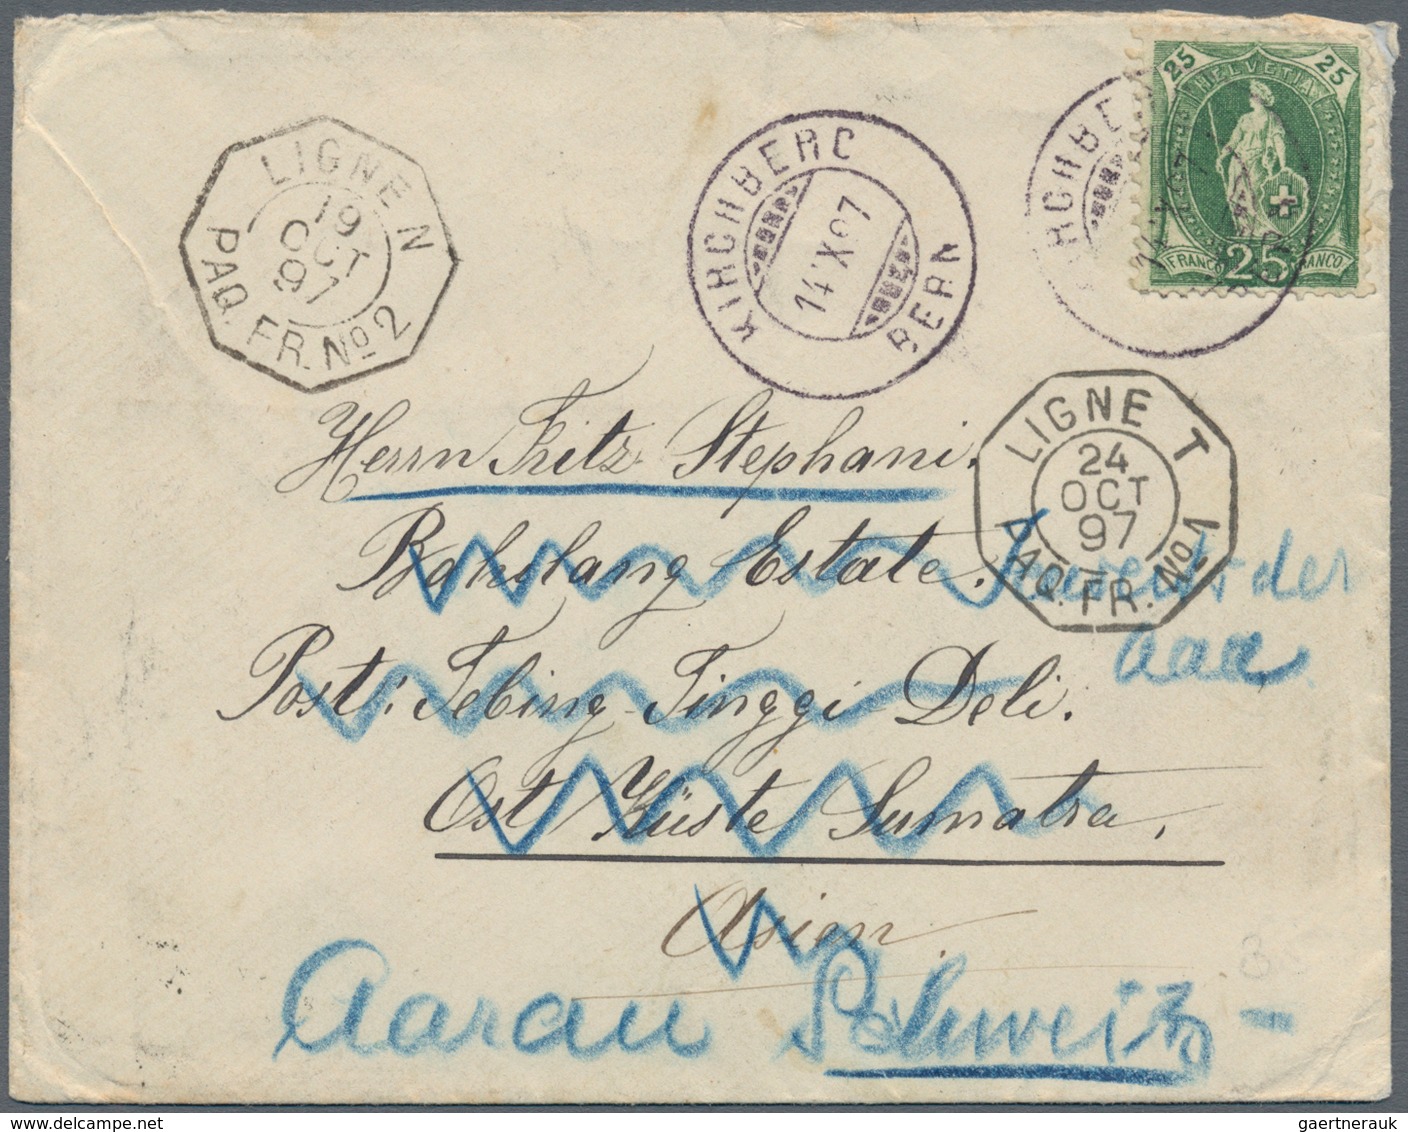 25 HELVETIA 25
FRANCO 25 FRANCO
KIRCHBERG
14.X.97
BERN
RCHBE
LIGNE N
19
OCT
97
PAQ. FR. No 2
LIGNE T
24
OCT
97
PAQ. FR. No 1
Herrn Fritz Stephani.
Estate.
der
Post: Tebing-Tinggi Deli.
Aare
Ost Küste Sumatra,
Asien.
Aarau Schweiz
gaertnerauk